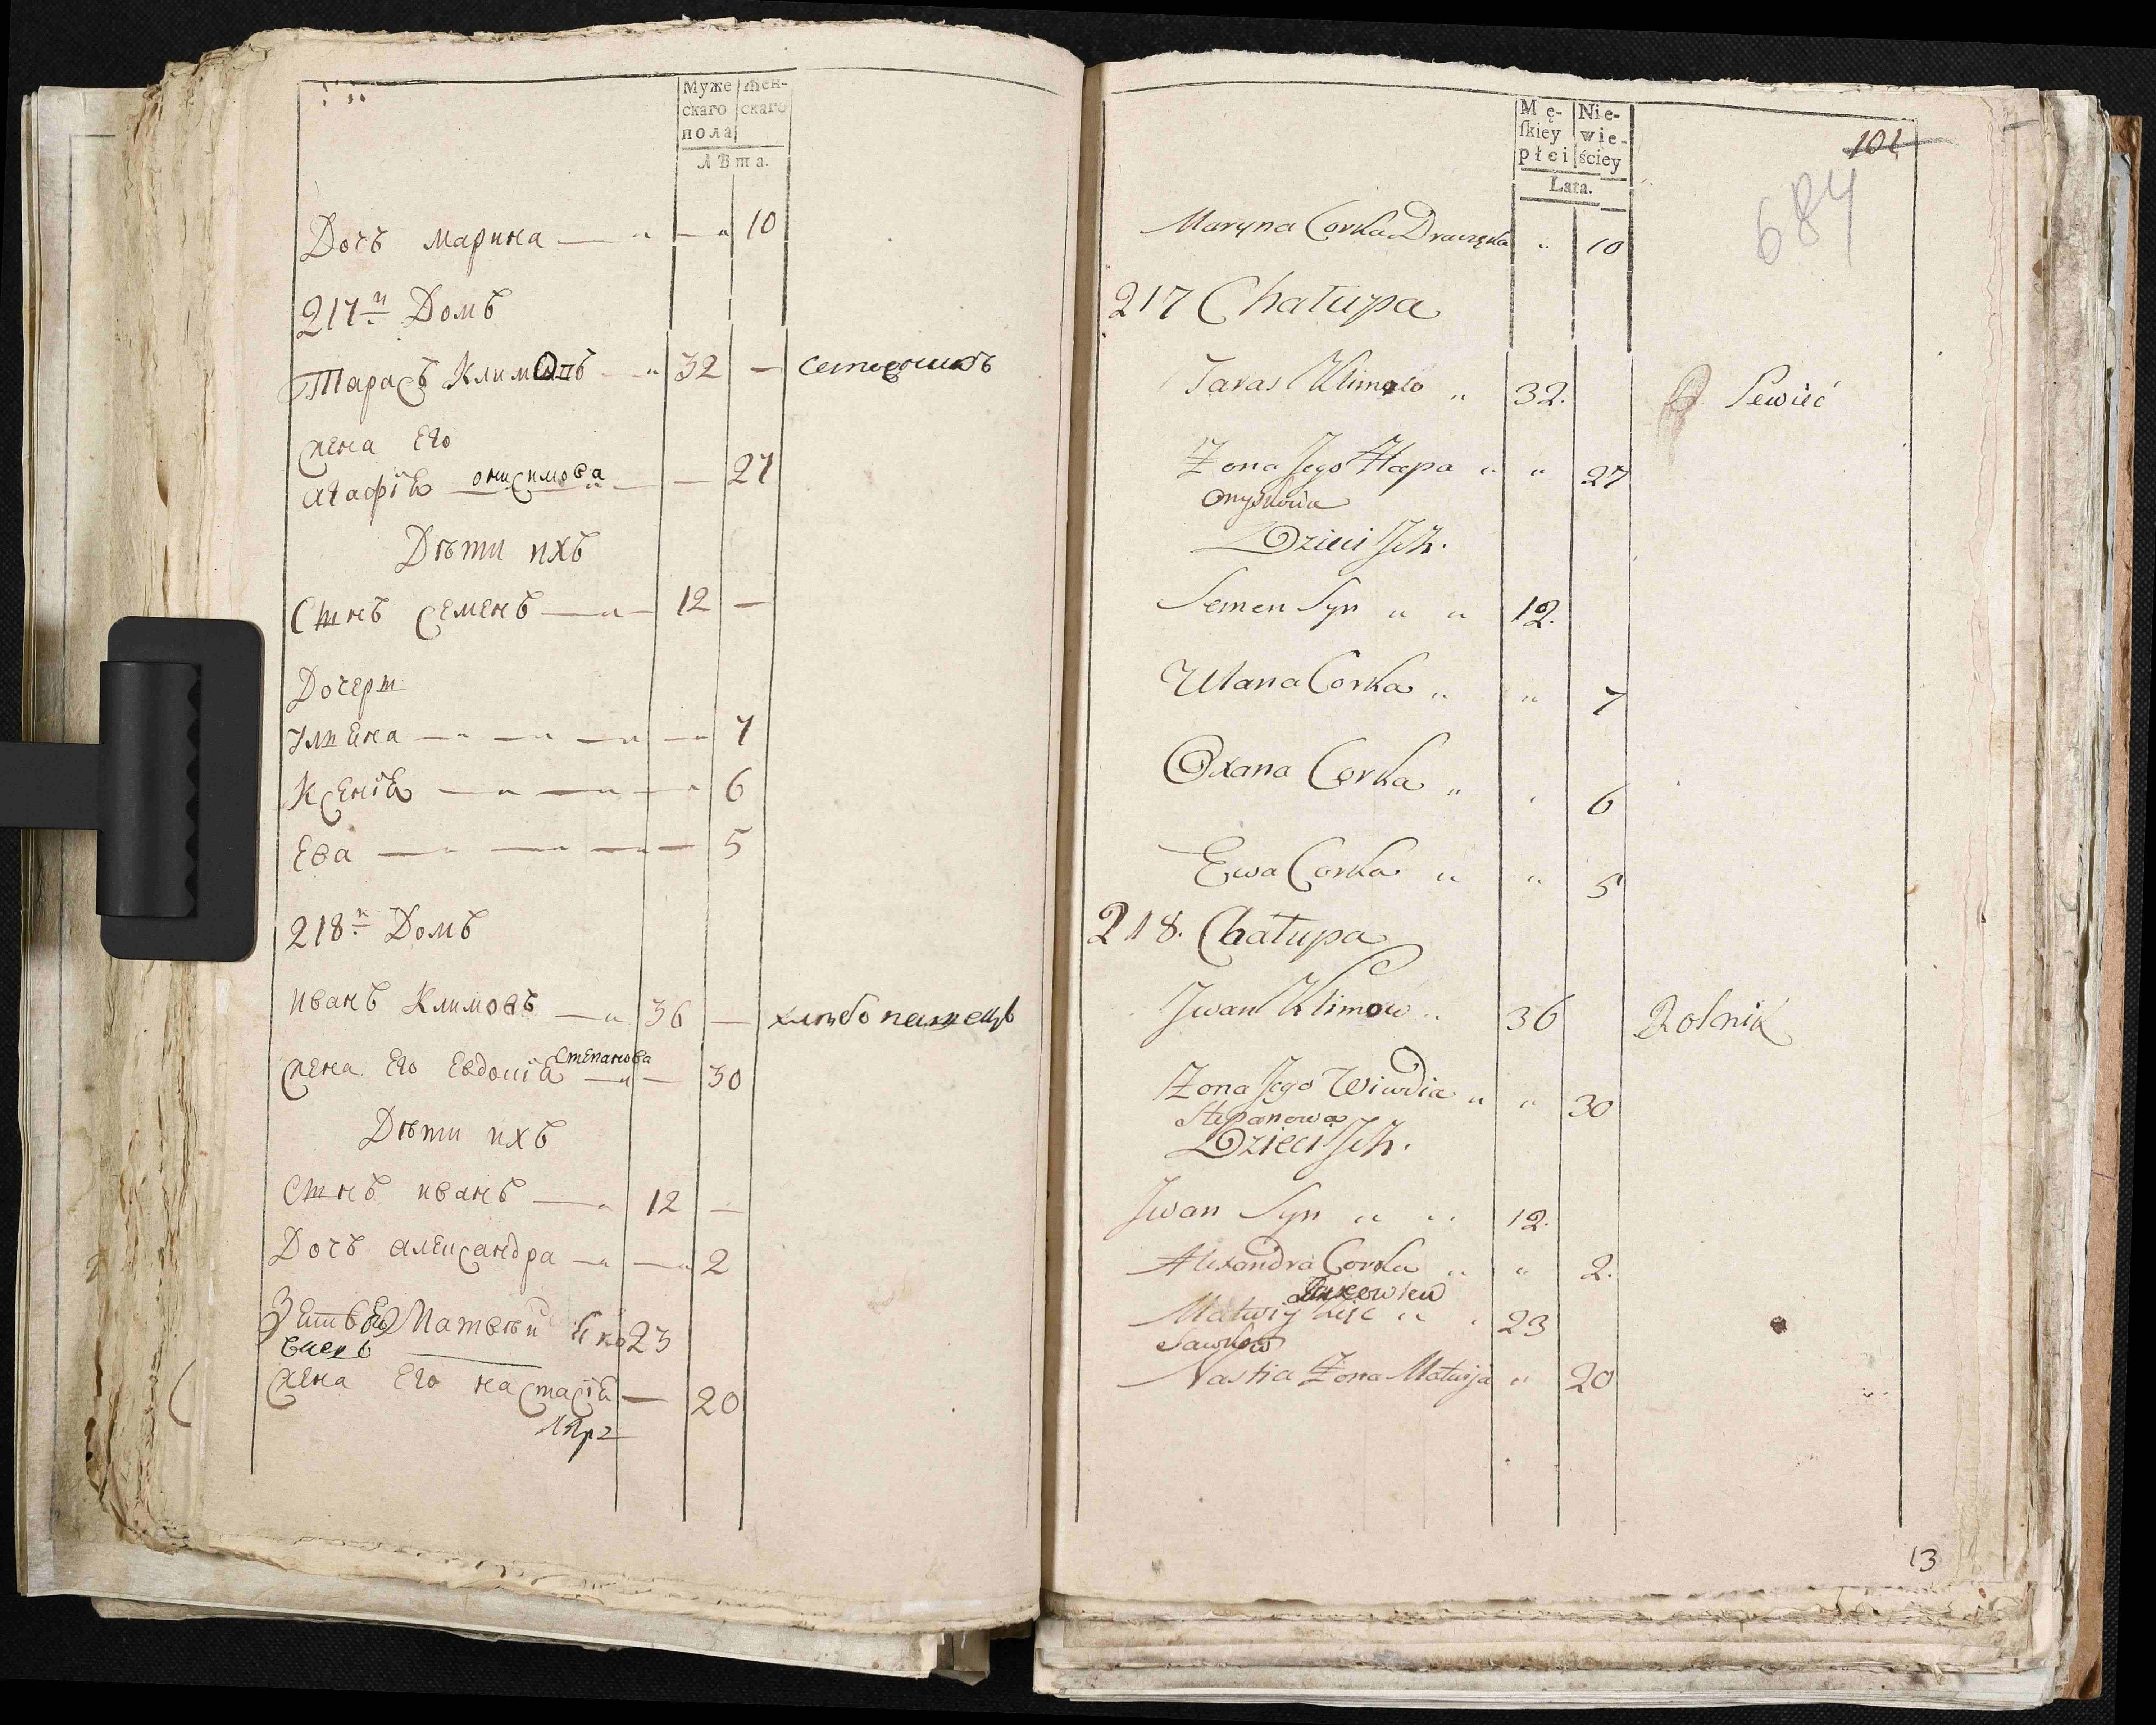 Муже Жен-
скаго скаго
пола
Лѣта.
Дочь Марина 10
217й Домъ
Тарасъ Климовъ 32 —
жена Его
Агафія онисимова 27
Дѣти ихъ
Сынъ Семенъ 12 —
Дочеры
Улияна 7
Ксенія 6
Ева 5
218й Домъ
иванъ Климовъ 36 — хлѣбопашецъ
Степанова
жена Его Евдокія 30
Дѣти ихъ
Сынъ иванъ 12 —
Дочь александра 2
Матвѣй 23
жена Его настасія 20
101
684
Mę- Nie-
skiey wie-
płci ściey
Lata.
Maryna Corka Drugzka " 10
217 Chałupa
Taras Klimow " 32. Sewiec
Zona Jego Hapa " " 27
Onyskowa
Dzieci Jch.
Semen Syn " " 12.
Ulana Corka " " 7
Oxana Corka " " 6
Ewa Corka " " 5
218. Chałupa
Jwan Klimow " 36 Rolnik
Zona Jego Wiwdia " " 30
Stepanowa
Dzieci Jch.
Jwan Syn " " 12.
Alexandra Corka " " 2.
Matwiy Zięc " " 23
Nastia Zona Matwija " 20
13